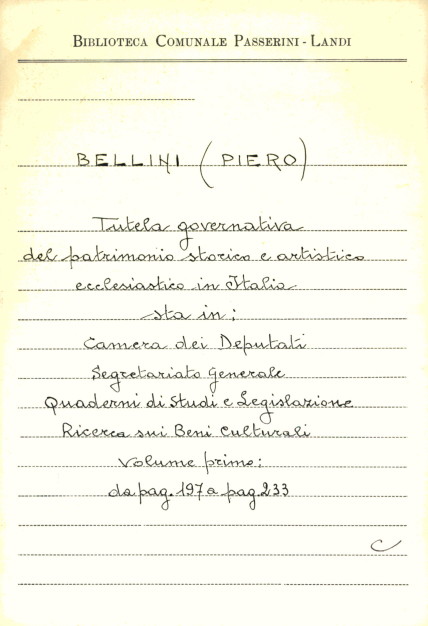 BIBLIOTECA COMUNALE PASSERINI - LANDI
BELLINI (PIERO)
Tutela governativa
del patrimonio storico e artistico
ecclesiastico in Italia
sta in:
Camera dei Deputati
Segretariato Generale
Quaderni di Studi e Legislazione
Ricerca sui Beni Culturali
Volume primo:
da pag. 197 a pag. 233
C